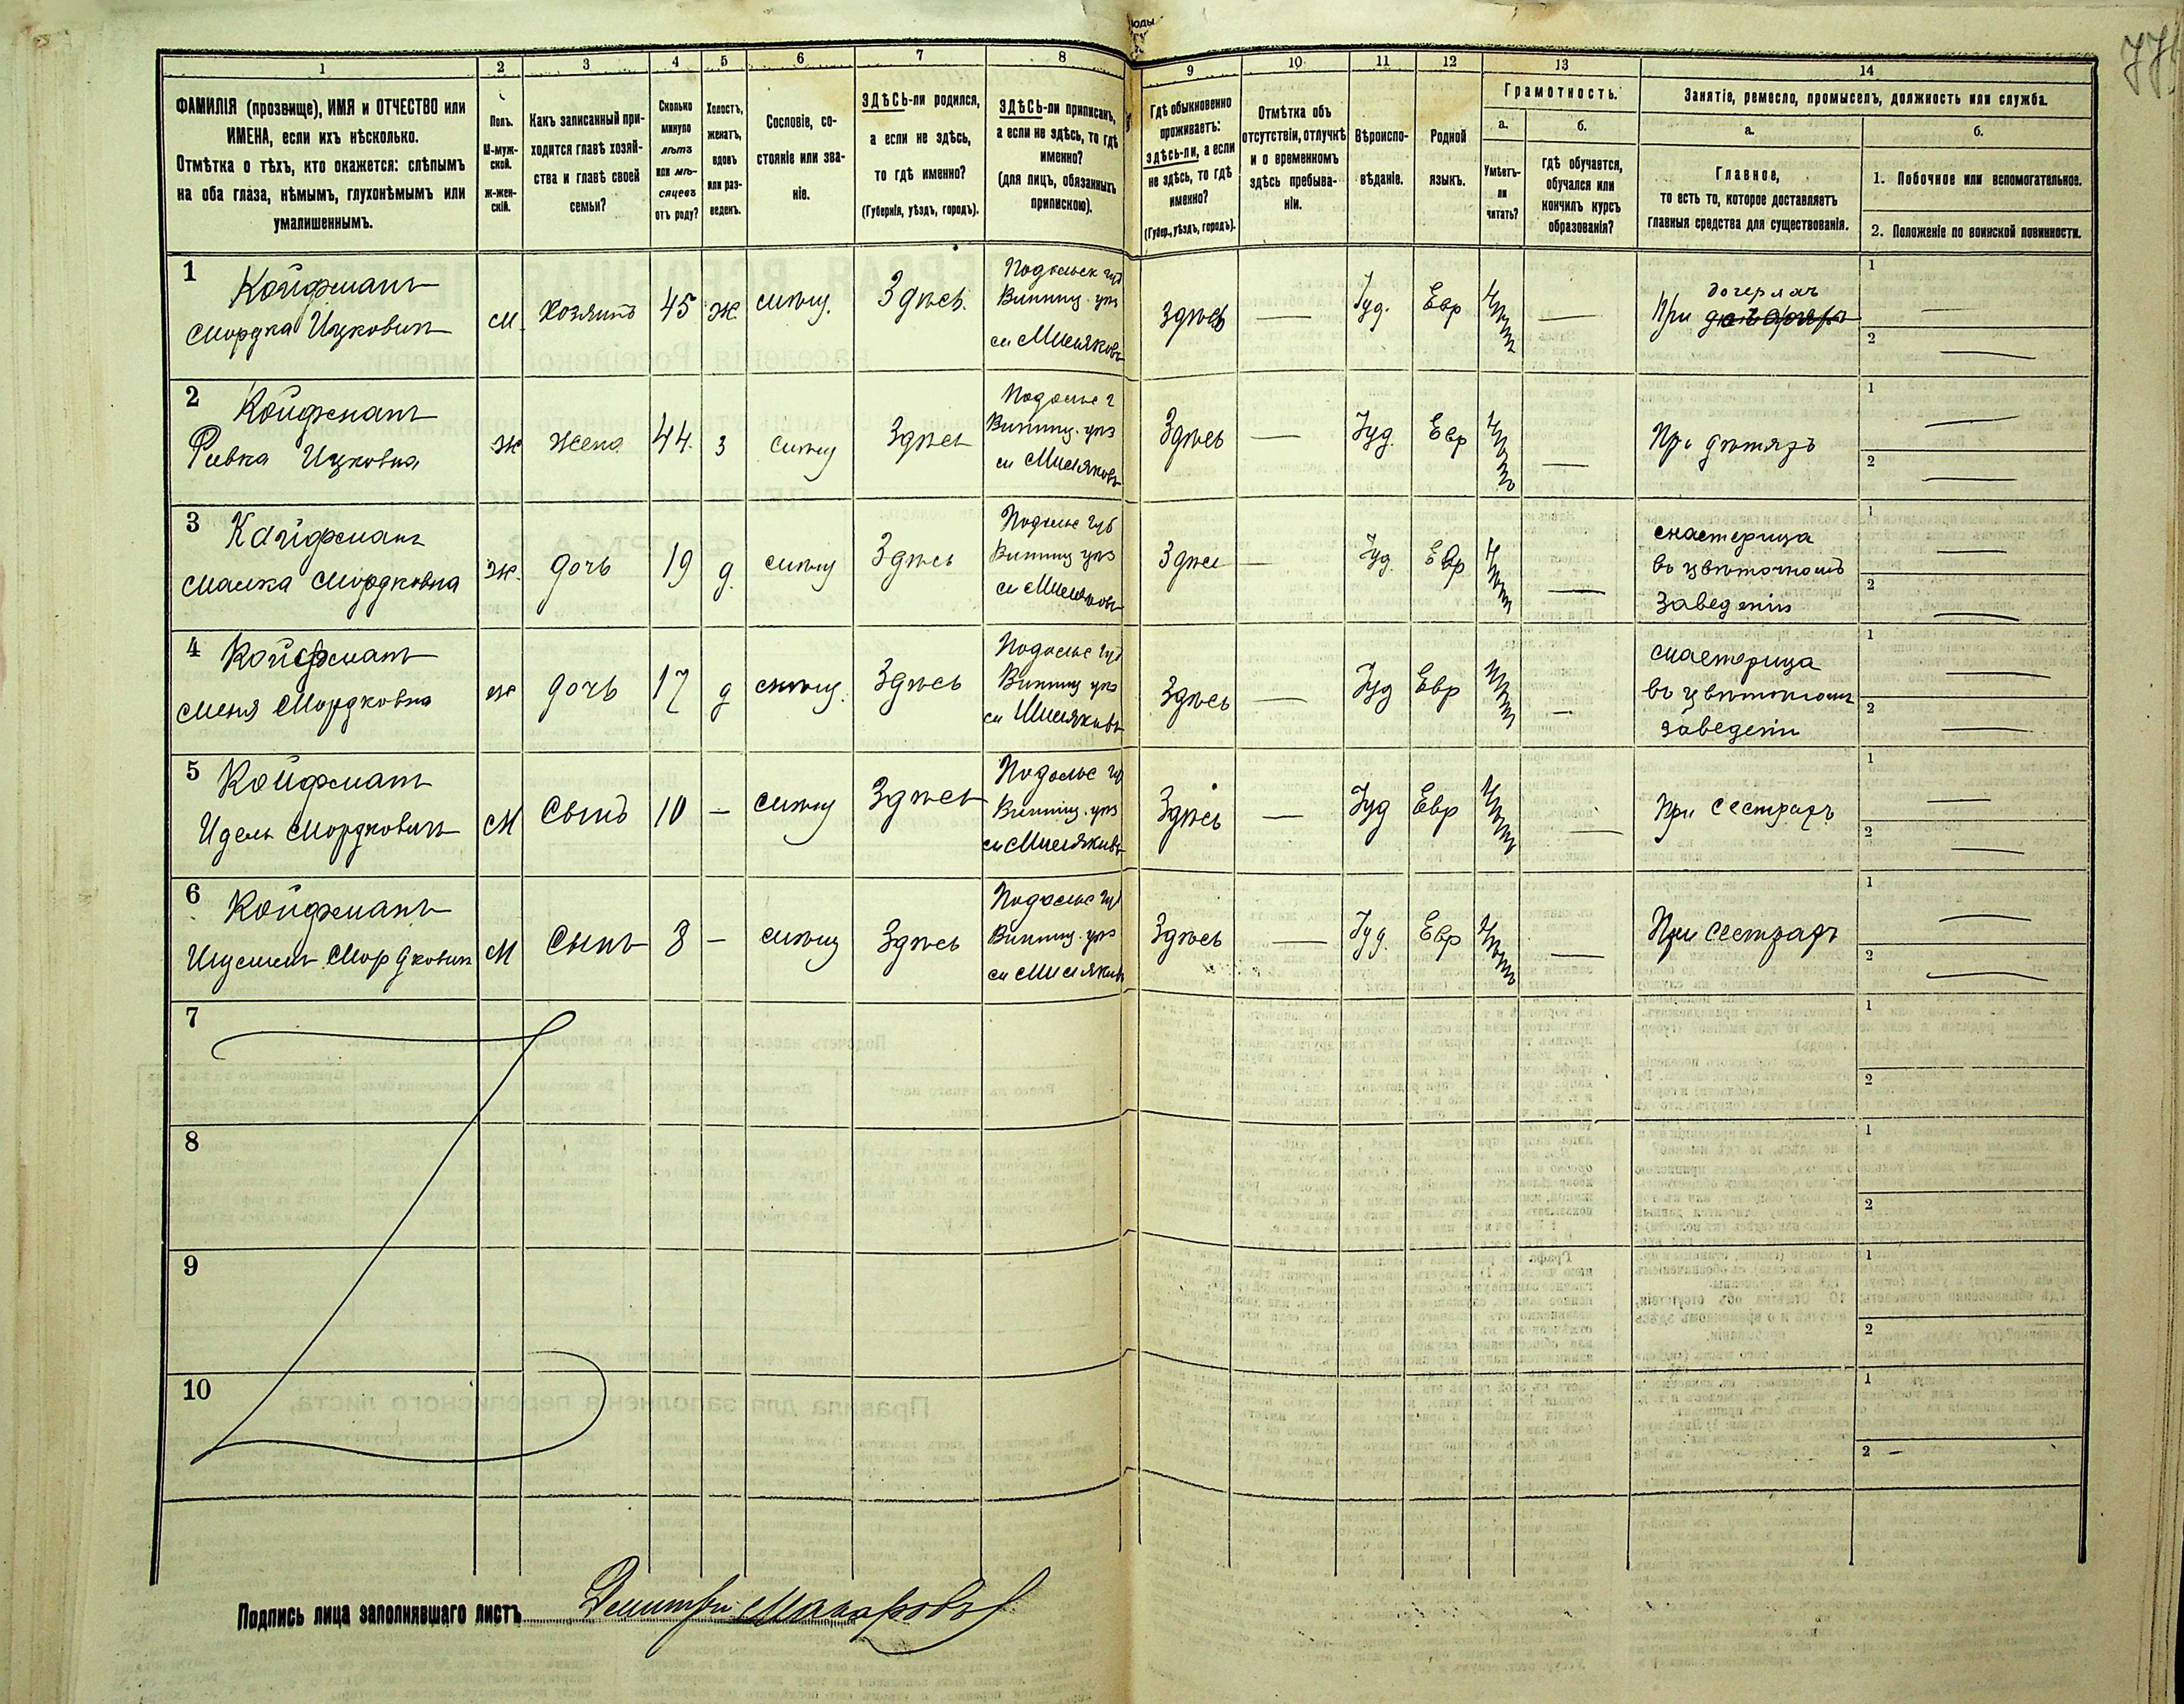 юды
77
1 2 3 4 5 6 7 8 9 10 11 12 13 14
ФАМИЛІЯ (прозвище), ИМЯ и ОТЧЕСТВО или
ИМЕНА, если ихъ нѣсколько.
Отмѣтка о тѣхъ, кто окажется: слѣпымъ
на оба глаза, нѣмымъ, глухонѣмымъ или
умалишеннымъ.
Полъ.
М-муж-
ской.
Ж-жен-
скій.
Какъ записанный при-
ходится главѣ хозяй-
ства и главѣ своей
семьи?
Сколько
минуло
лѣтъ
или мѣ-
сяцевъ
отъ роду?
Холостъ,
женатъ,
вдовъ
или раз-
веденъ.
Сословіе, со-
стояніе или зва-
ніе.
ЗДѢСЬ-ли родился,
а если не здѣсь,
то гдѣ именно?
(Губернія, уѣздъ, городъ).
ЗДѢСЬ-ли приписанъ,
а если не здѣсь, то гдѣ
именно?
(для лицъ, обязанныхъ
припискою).
Гдѣ обыкновенно
проживаетъ:
здѣсь-ли, а если
не здѣсь, то гдѣ
именно?
(Губер., уѣздъ, городъ).
Отмѣтка объ
отсутствіи, отлучкѣ
и о временномъ
здѣсь пребыва-
ніи.
Вѣроиспо-
вѣданіе.
Родной
языкъ.
Грамотность.
а.
Умѣетъ-
ли
читать?
б.
гдѣ обучается,
обучался или
кончилъ курсъ
образованія?
Занятіе, ремесло, промыселъ, должность или служба.
а.
Главное,
то есть то, которое доставляетъ
главныя средства для существованія.
б.
1. Побочное или вспомогательное.
2. Положеніе по воинской повинности.
1 Койфманъ
Мордка Ицковичъ
М. Хозяинъ 45 ж. мѣщ. Здѣсь.
Подольск губ
Винниц. уѣз
м Мисяковъ
Здѣсь — Іуд. Евр —
дочеряхъ
При
1 —
2 —
2 Койфманъ
Ривка Ицковна
ж жена 44. з мѣщ Здѣсь
Подольс г
Винниц. уѣз
м Мисяковъ
Здѣсь — Іуд. Евр —
При дѣтяхъ
1 —
2 —
3 Койфманъ
Малка Мордковна
ж. дочь 19 д. мѣщ Здѣсь
Подольс губ
Винниц уѣз
м Мисяковъ
Здѣсь — Іуд. Евр —
мастерица
въ цвѣточномъ
заведеніи
1 —
2 —
4 Койфманъ
Меня Мордковна
ж дочь 17 д мѣщ. Здѣсь
Подольс губ
Винниц уѣз
м Мисяковъ
Здѣсь — Іуд Евр —
мастерица
въ цвѣточномъ
заведеніи
1 —
2 —
5 Койфманъ
Идель Мордковичъ
М Сынъ 10 — мѣщ Здѣсь
Подольс губ
Винниц. уѣз
м Мисяковъ
Здѣсь — Іуд Евр —
При сестрахъ
1 —
2 —
6 Койфманъ
Мордковичъ
М Сынъ 8 — мѣщ Здѣсь
Подольс губ
Винниц. уѣз
м Мисяковъ
Здѣсь — Іуд. Евр —
При сестрахъ
1 —
2 —
7
1
2
8
1
2
9
1
2
10
1
2 —
Подпись лица заполнявшаго листъ Дмитрій Макаровъ